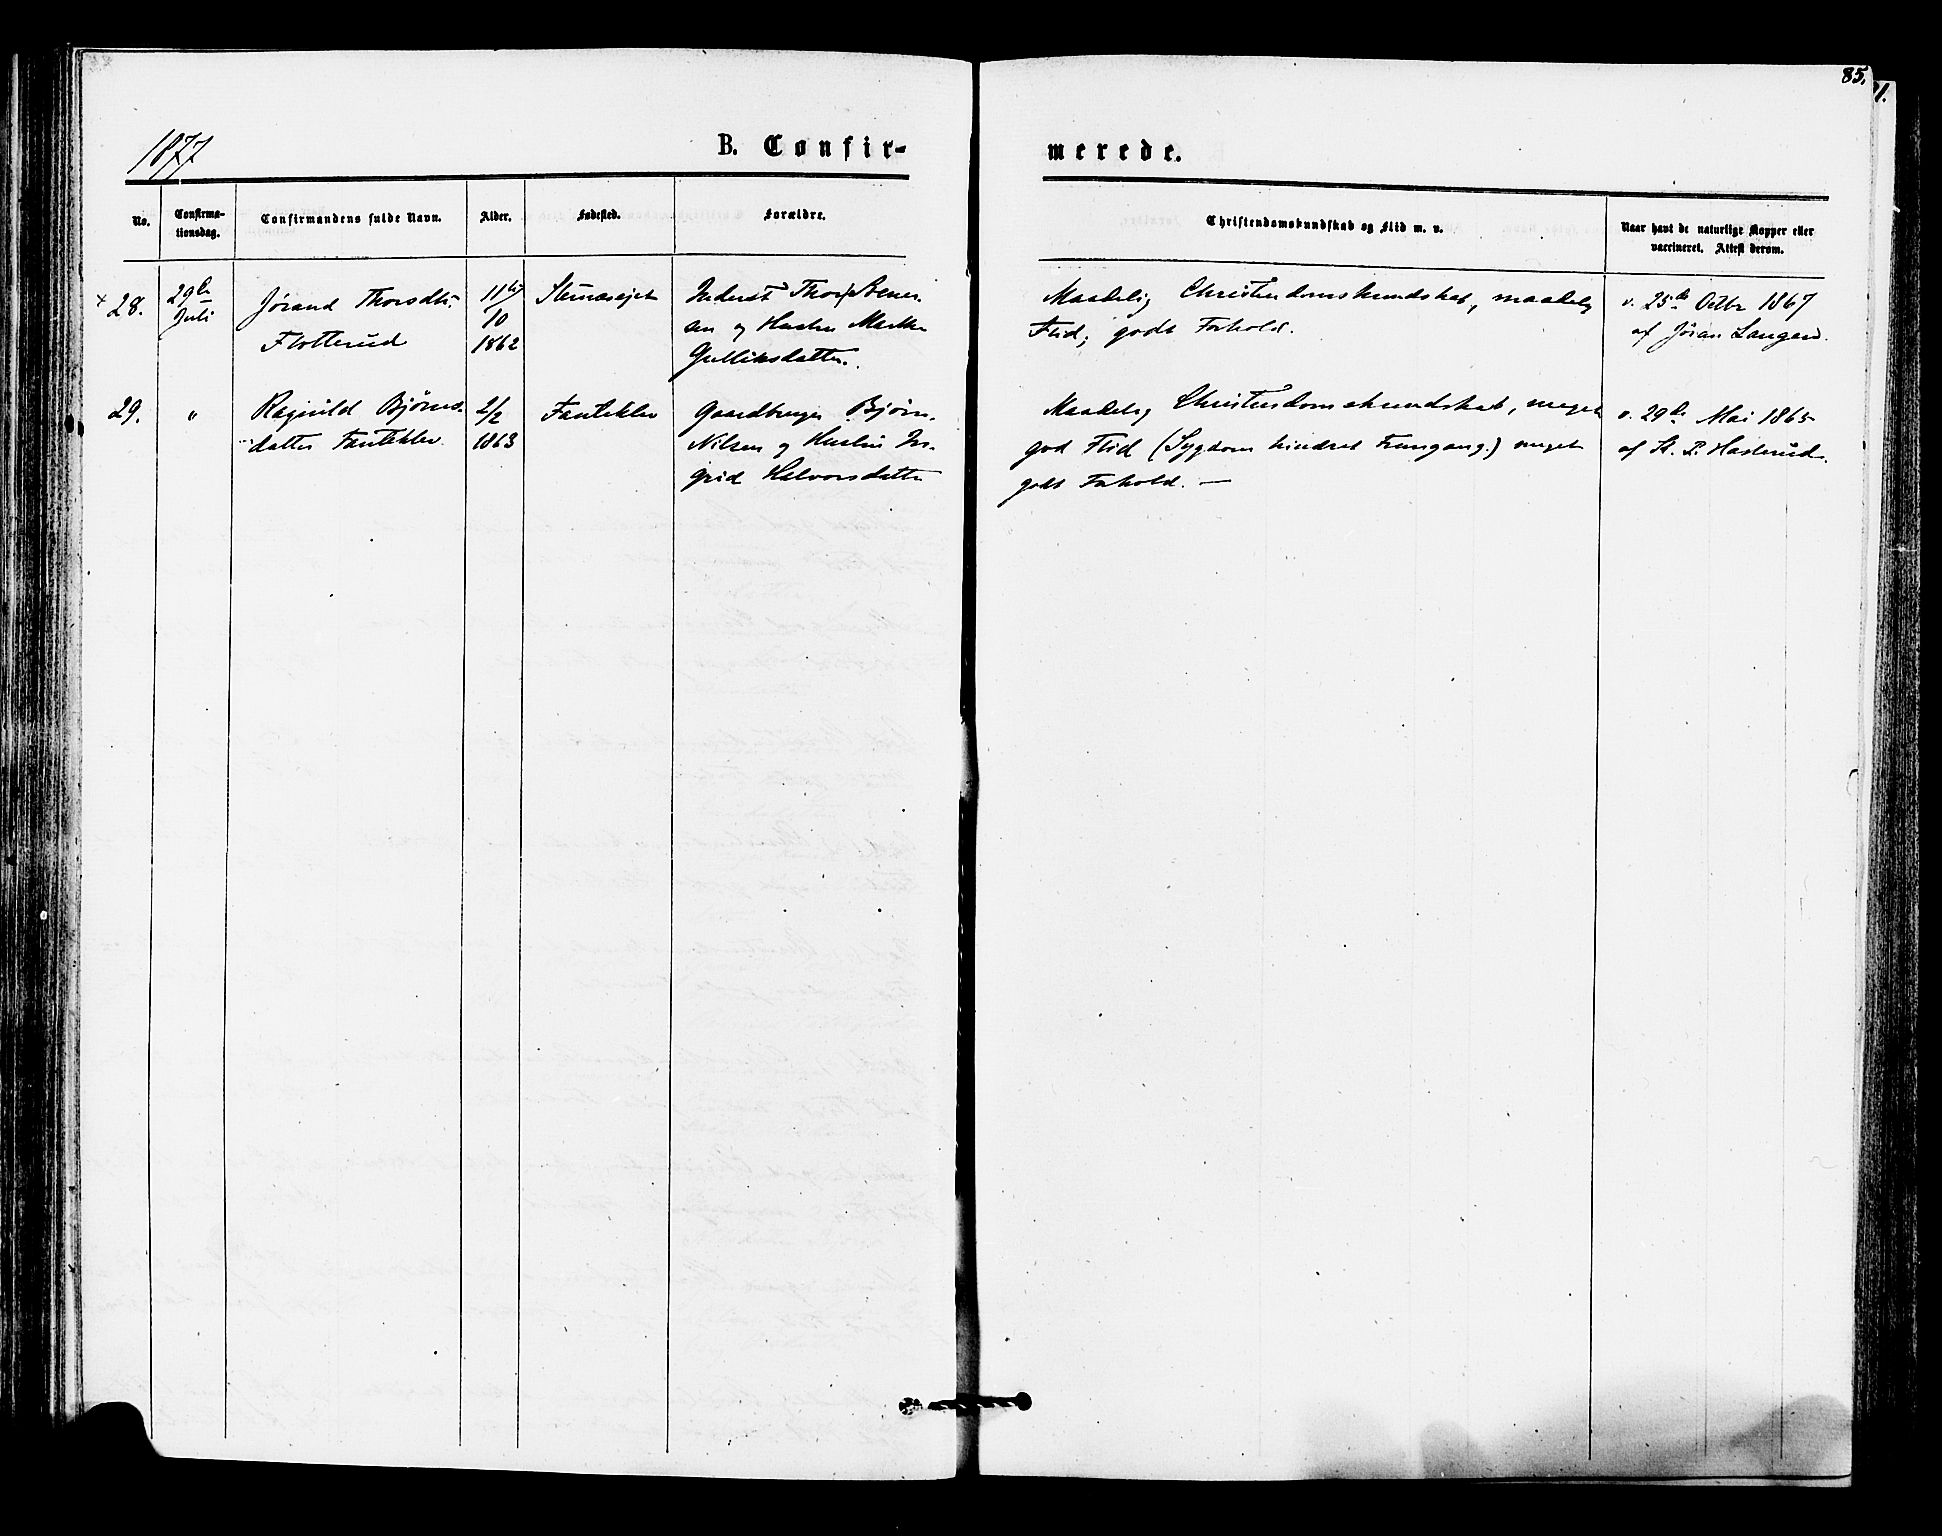 85.
1.
1877
B. Confir-
merede.
No.
Confirma-
tionsdag.
Confirmandens fulde Navn.
Alder.
Fødested.
Forældre.
Christendomskundskab og Flid m. v.
Naar havt de naturlige Kopper eller
vaccineret. Attest derom.
28.
29de
Juli
Jørand Thorsdtr.
Flotterud
11
10
1862
Thor
sen og Hustru
Gulliksdatter.
Maadelig Christendomskundskab, maadelig
Flid, godt Forhold.
v. 25de Octbr 1867
af Jøran Langerud.
29.
"
Ragnild Bjørns-
datter Fanteklev.
2/2
1863
Fanteklev
Gaardbruger Bjørn
Nilsen og Hustru In-
grid Halvorsdatter
Maadelig Christendomskundskab, meget
god Flid (Sygdom hindret Fremgang.) meget
godt Forhold. —
v. 29de Mai 1865
af H. P. Hasterud.